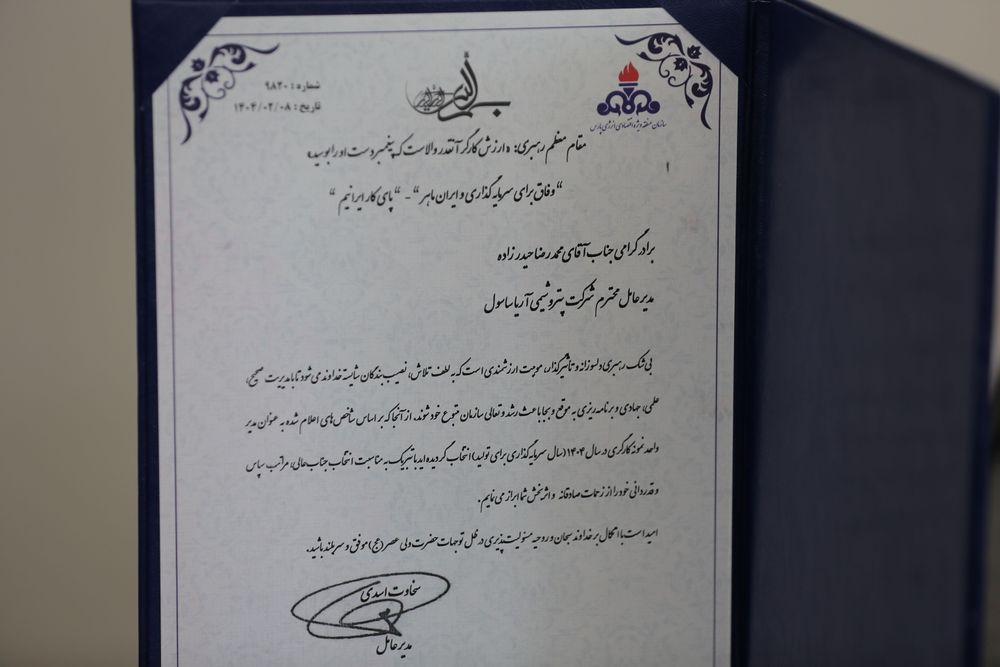 بسم الله الرحمن الرحیم
شماره : ۹۸۲۰
تاریخ : ۱۴۰۴/۰۲/۰۸
سازمان منطقه ویژه اقتصادی انرژی پارس
مقام معظم رهبری: «ارزش کارگر آنقدر والاست که پیغمبر دست او را بوسید»
“وفاق برای سرمایه گذاری و ایران ماهر“ - “پای کار ایرانیم “
برادر گرامی جناب آقای محمدرضا حیدرزاده
مدیرعامل محترم شرکت پتروشیمی آریاساسول
بی شک رهبری دلسوزانه و تأثیرگذار، موهبت ارزشمندی است که به لطف تلاش، نصیب بندگان شایسته خداوند می شود تا با مدیریت صحیح،
علمی، جهادی و برنامه ریزی به موقع و بجا باعث رشد و تعالی سازمان متبوع خود شوند. از آنجا که بر اساس شاخص های اعلام شده به عنوان مدیر
واحد نمونه کارگری در سال ۱۴۰۴ (سال سرمایه گذاری برای تولید) انتخاب گردیده اید با تبریک به مناسبت انتخاب جناب عالی، مراتب سپاس
و قدردانی خود را از زحمات صادقانه و اثربخش شما ابراز می نمایم.
امید است با اتکال بر خداوند سبحان و روحیه مسئولیت پذیری در ظل توجهات حضرت ولی عصر (عج) موفق و سربلند باشید.
سخاوت اسدی
مدیرعامل